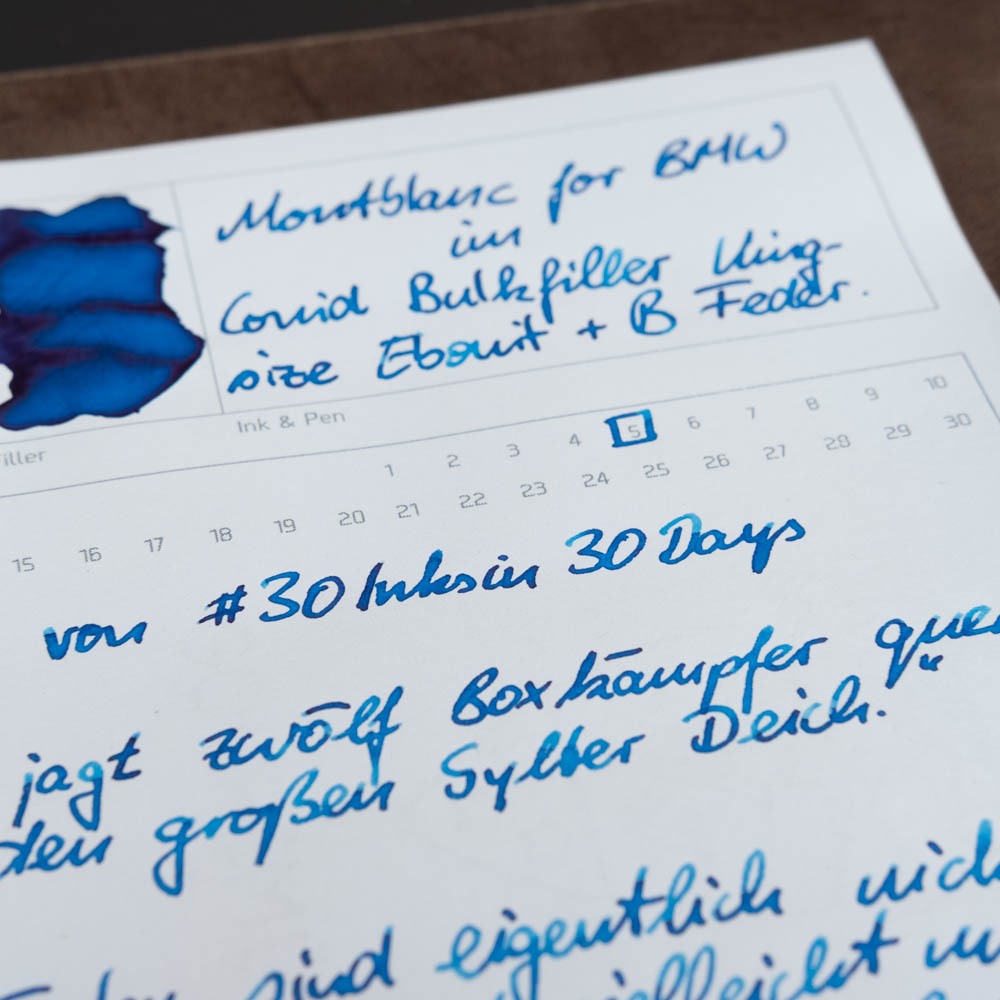 Montblanc for BMW
im
Conid Bulkfiller King-
size Ebonit + B Feder.
Ink & Pen
1 2 3 4 5 6 7 8 9 10
15 16 17 18 19 20 21 22 23 24 25 26 27 28 29 30
von #30Inksin30Days
jagt zwölf Boxkämpfer quer
den großen Sylter Deich.“
sind eigentlich
vielleicht